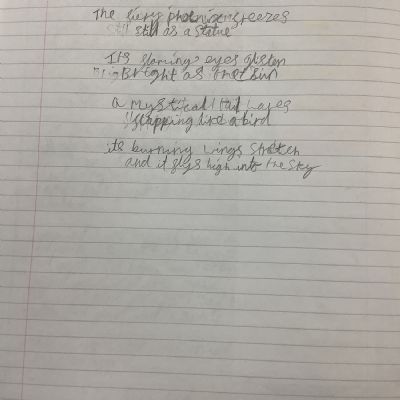 The fiery phoenix freezes
still as a statue
Its flaming eyes glisten
Bright as that sun
a mystical tail waves
flapping like a bird
its burning wings stretch
and it flys high into the sky